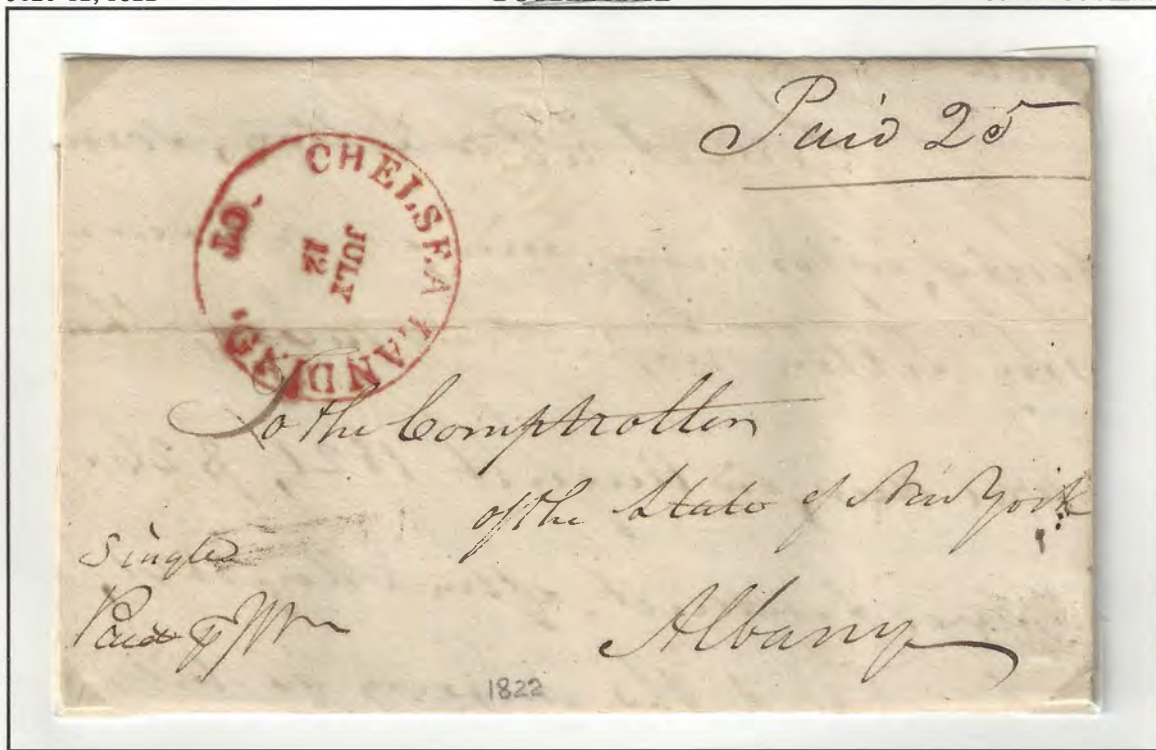 Paid 25
CHELSEA LANDING. CT.
JULY
12
To the Comptroller
of the State of New York
Single
Paid
Albany
1822